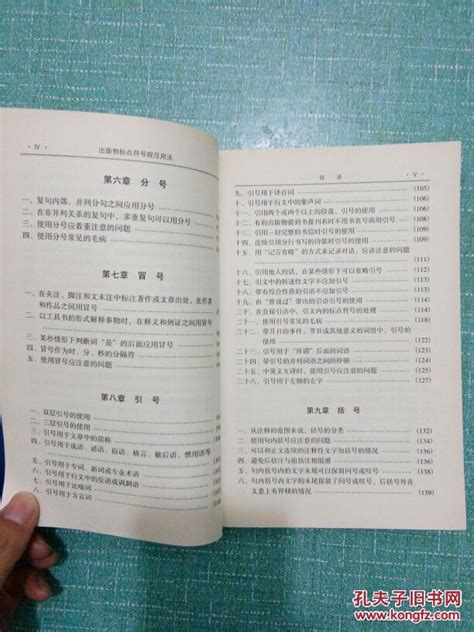 · Ⅳ · 出版物标点符号规范用法
第六章 分 号
一、复句内部,并列分句之间应用分号
二、在非并列关系的复句中,多重复句可以用分号
三、使用分号应着重注意的问题
四、使用分号常见的毛病
第七章 冒 号
一、在夹注、脚注和文末注中标注著作或文章出处,在作者
和作品之间用冒号
二、以工具书的形式解释事物时,在释义和例证之间用冒号
三、某些情形下判断词“是”的后面应用冒号
四、冒号作为时、分、秒的分隔符
五、使用冒号应注意的问题
第八章 引 号
一、双层引号的使用
二、三层引号的使用
三、引号用于文中的简称
四、引号用于成语、谚语、俗语、格言、歇后语、惯用语等
五、引号用于专词、新词或专业术语
六、引号用于行文中的反语或讽刺语
七、引号用于比喻词
八、引号用于方言词
目 录 · Ⅴ ·
九、引号用于译音词 (105)
十、引号用于行文中的象声词 (106)
十一、引用两个或两个以上的段落,引号的使用 (107)
十二、有的出版物能到书报刊名时不用书名号而用引号 (108)
十三、引用一封完整的书信时引号的使用 (109)
十四、连续引用分行书写的诗歌时引号的使用 (109)
十五、用“记言省略”的方式来记录对话,应该注意的问题
(111)
十六、引用他人的话,在某些情形下可以省略引号 (112)
十七、引文中的转述性文字不应加引号 (113)
十八、带有综合性质的引语不应加引号
十九、由“曾说过”带出的引语引号的使用
二十、在直接引语中,引文内的标点符号的处理
二十一、使用引号常见的毛病
二十二、带月日的事件、节日或其他意义的词组中,引号的
使用
二十三、引号用于“所谓”后面的词语
二十四、带引号的并列词语之间的停顿
二十五、中英文互译时,使用引号应注意的问题
二十六、引号用于左倾的左字 (127)
第九章 括 号
一、从注释的范围来说,括号的分类 (132)
二、使用句内括号应注意的问题 (134)
三、可以和正文连续的注释性文字加括号的情况 (136)
四、避免后括注与前括注相混淆 (138)
五、句内括号内的文字末尾可以保留问号或叹号 (138)
六、句内括号内的文字的末尾保留了问号或叹号,括号外在
文意上有停顿的情况 (139)
孔夫子旧书网
www.kongfz.com